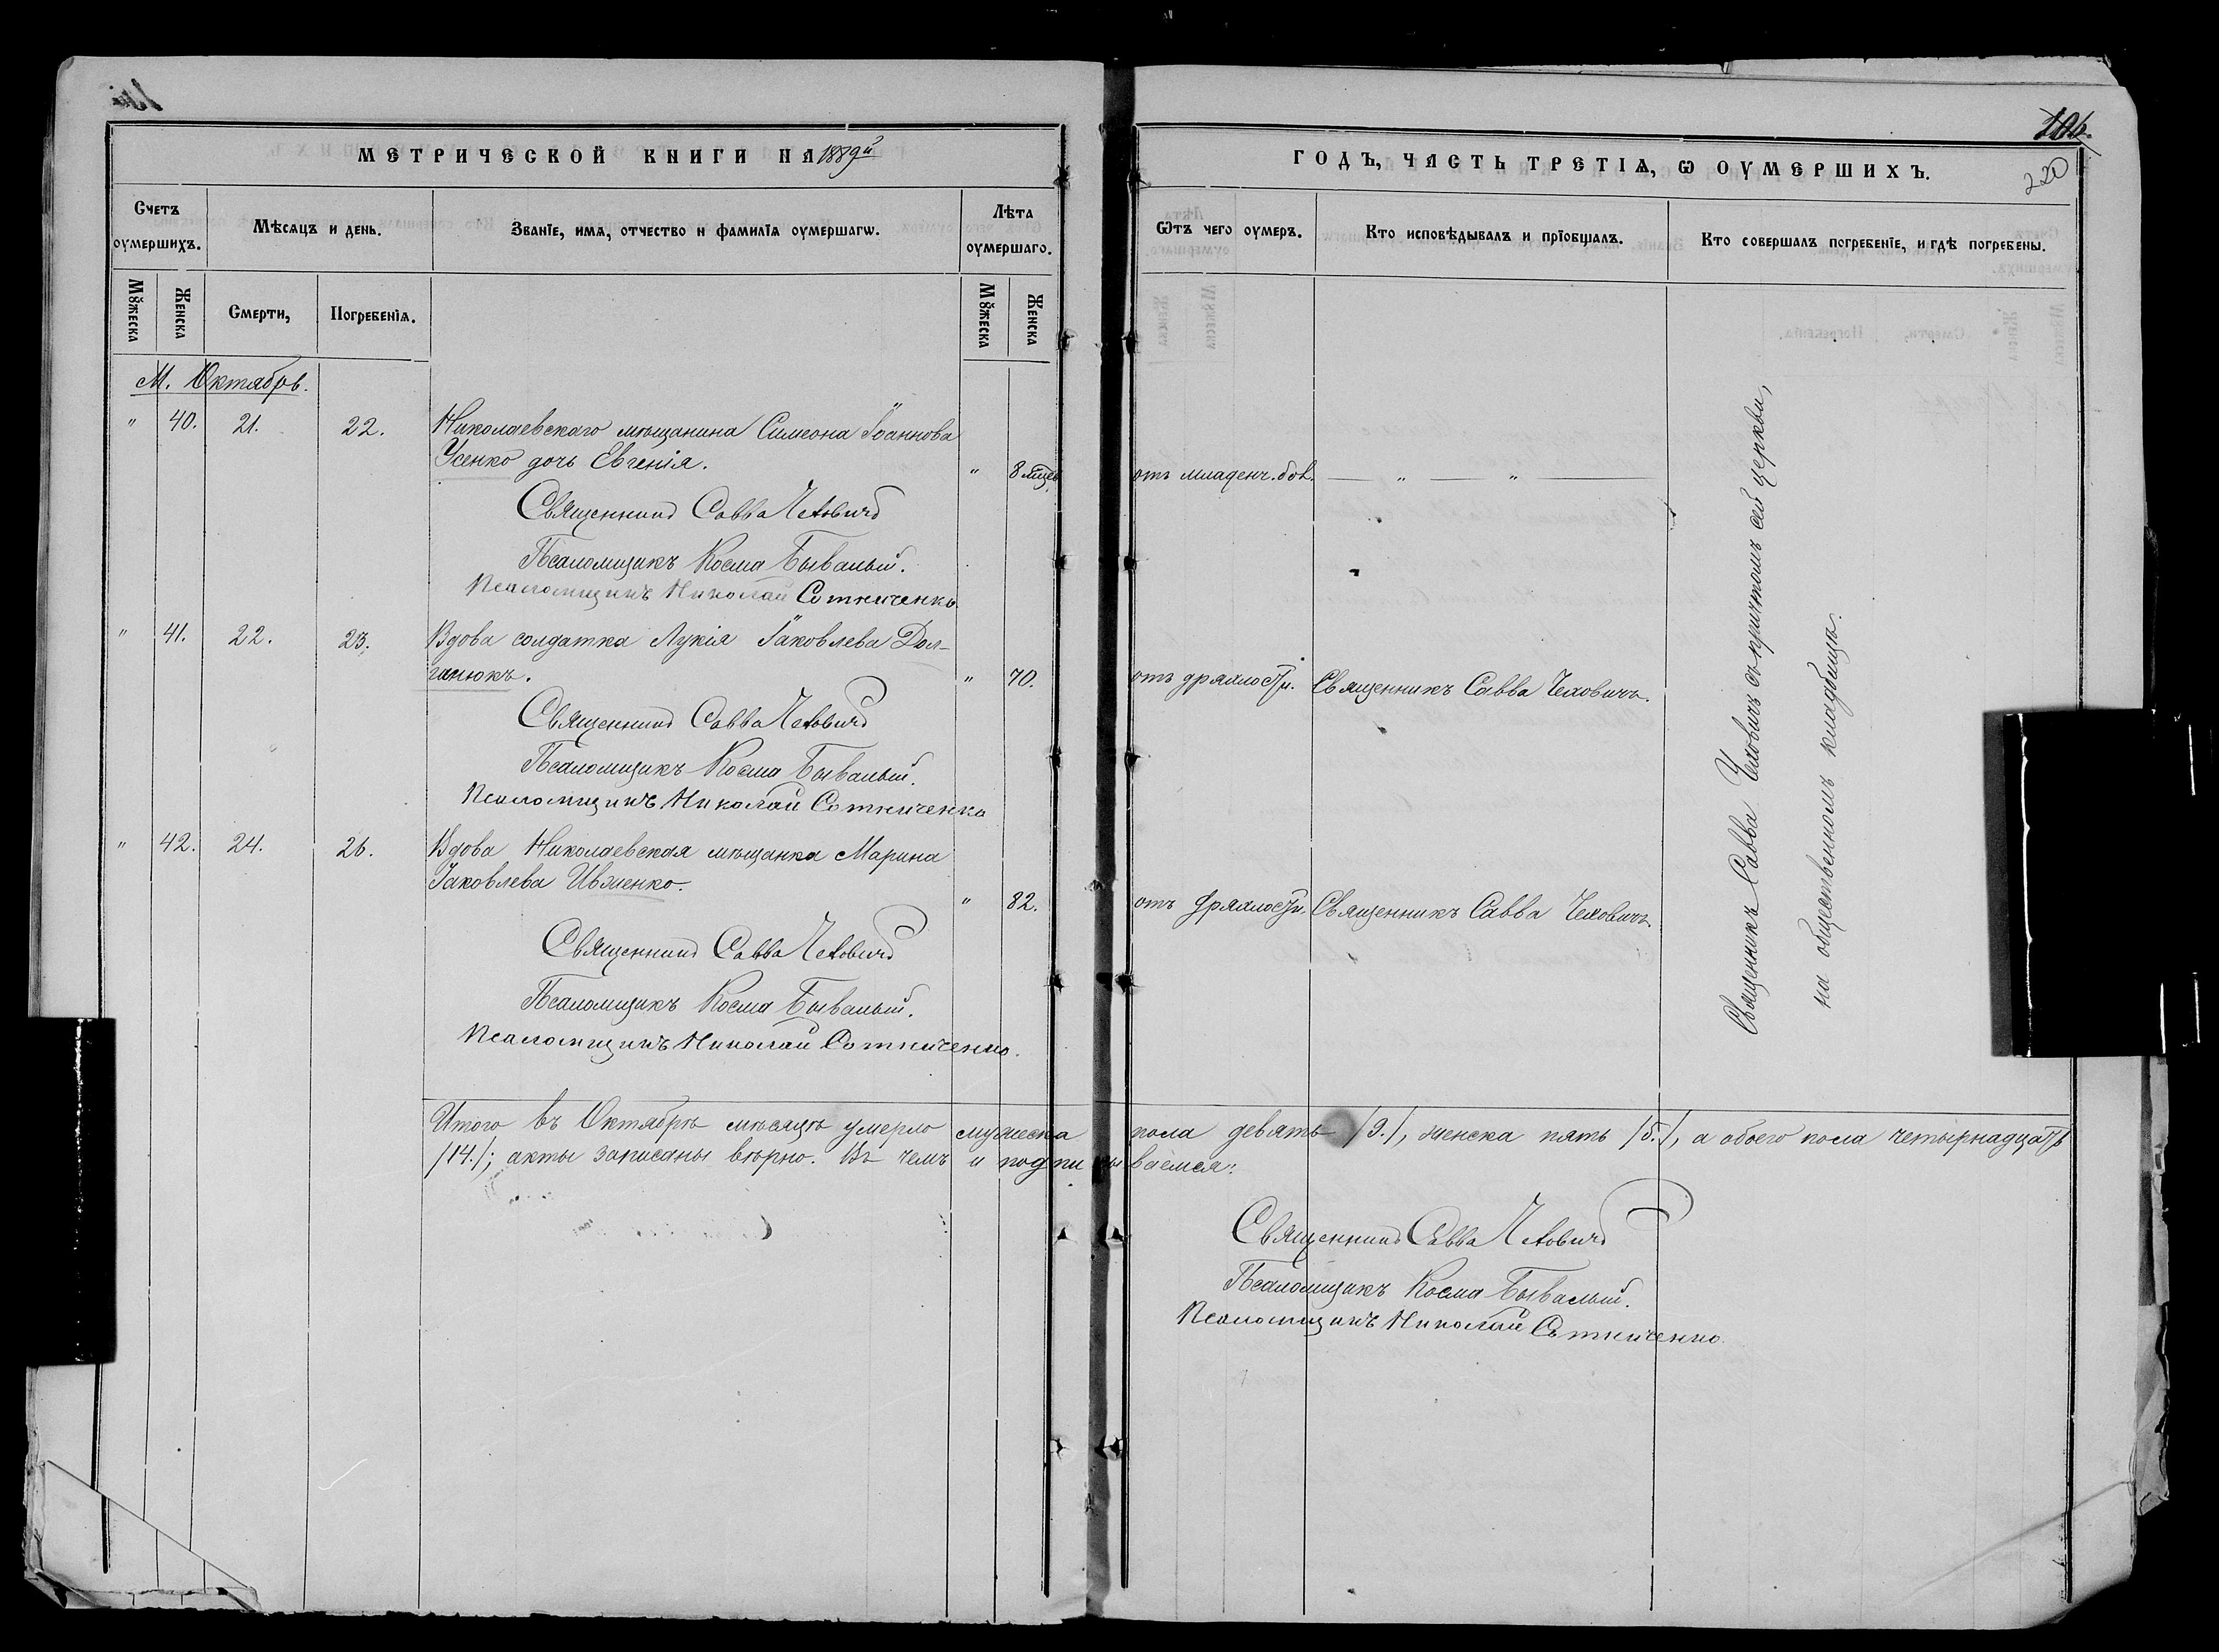 106.
220
МЕТРИЧЕСКОЙ КНИГИ НА 1889й
ГОДЪ, ЧАСТЬ ТРЕТІѦ, Ѡ ОУМЕРШИХЪ.
Счетъ оумершихъ.
Мѣсяцъ и день.
Званіе, имѧ, отчество и фамиліѧ оумершагѡ.
Лѣта оумершаго.
Ѿтъ чего оумеръ.
Кто исповѣдывалъ и пріобщалъ.
Кто совершалъ погребеніе, и гдѣ погребены.
Мꙋжеска
Женска
Смерти,
Погребеніѧ.
Мꙋжеска
Женска
М. Октябрь.
" 40. 21. 22. Николаевскаго мѣщанина Симеона Іоаннова
Усенко дочь Евгенія. " 8 мцев отъ младенч. бол. — " — " —
Священникъ Савва Чеховичъ
Псаломщикъ Косма Бывалый.
Псаломщикъ Николай Сотниченко
" 41. 22. 23. Вдова солдатка Лукія Іаковлева Дол-
ганюкъ. " 70. отъ дряхлости. Священникъ Савва Чеховичъ.
Священникъ Савва Чеховичъ
Псаломщикъ Косма Бывалый.
Псаломщикъ Николай Сотниченко
" 42. 24. 26. Вдова Николаевская мѣщанка Марина
Іаковлева Ивженко. " 82. отъ дряхлости. Священникъ Савва Чеховичъ.
Священникъ Савва Чеховичъ
Псаломщикъ Косма Бывалый.
Псаломщикъ Николай Сотниченко.
Священникъ Савва Чеховичъ съ причтомъ сей церкви,
на общественномъ кладбищѣ.
Итого въ Октябрѣ мѣсяцѣ умерло мужеска пола девять /9./, женска пять /5./, а обоего пола четырнадцать
/14./; акты записаны вѣрно. Въ чемъ и подписываемся:
Священникъ Савва Чеховичъ
Псаломщикъ Косма Бывалый.
Псаломщикъ Николай Сотниченко.